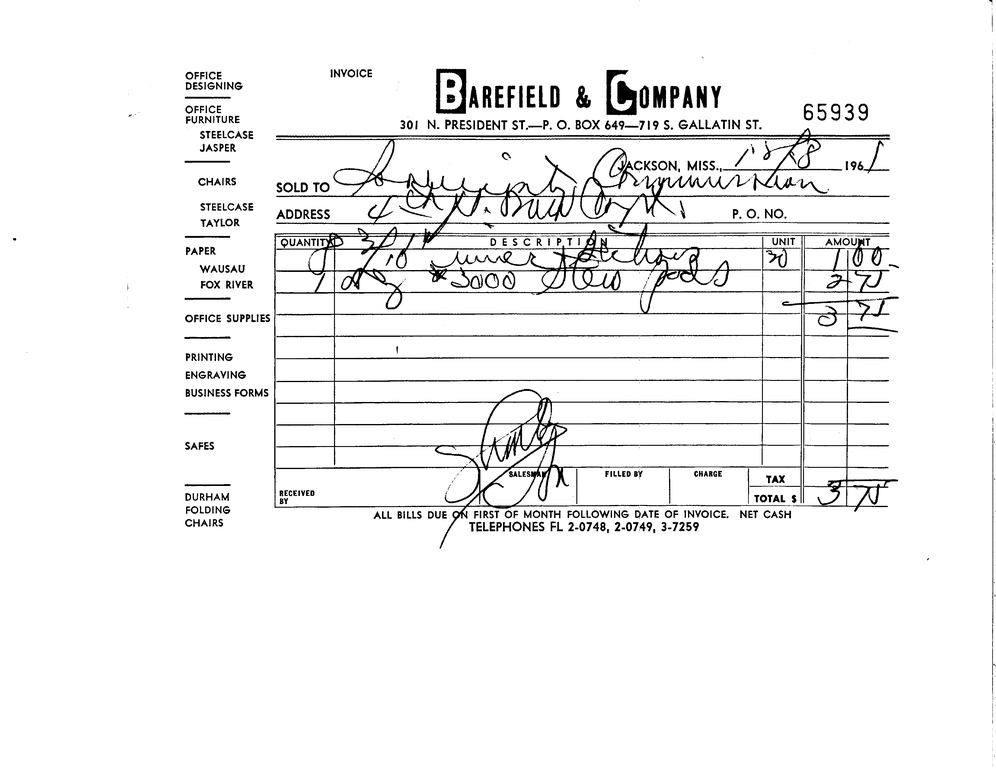 INVOICE
BAREFIELD & COMPANY
65939
301 N. PRESIDENT ST.—P. O. BOX 649—719 S. GALLATIN ST.
JACKSON, MISS., 196 1
SOLD TO Sovereignty Commission
ADDRESS
P. O. NO.
QUANTITY DESCRIPTION UNIT AMOUNT
30 1 00
1 #3000 Steno pads 2 75
3 75
SALESMAN FILLED BY CHARGE TAX
RECEIVED BY
TOTAL $ 3 75
ALL BILLS DUE ON FIRST OF MONTH FOLLOWING DATE OF INVOICE. NET CASH
TELEPHONES FL 2-0748, 2-0749, 3-7259
OFFICE
DESIGNING
OFFICE
FURNITURE
STEELCASE
JASPER
CHAIRS
STEELCASE
TAYLOR
PAPER
WAUSAU
FOX RIVER
OFFICE SUPPLIES
PRINTING
ENGRAVING
BUSINESS FORMS
SAFES
DURHAM
FOLDING
CHAIRS